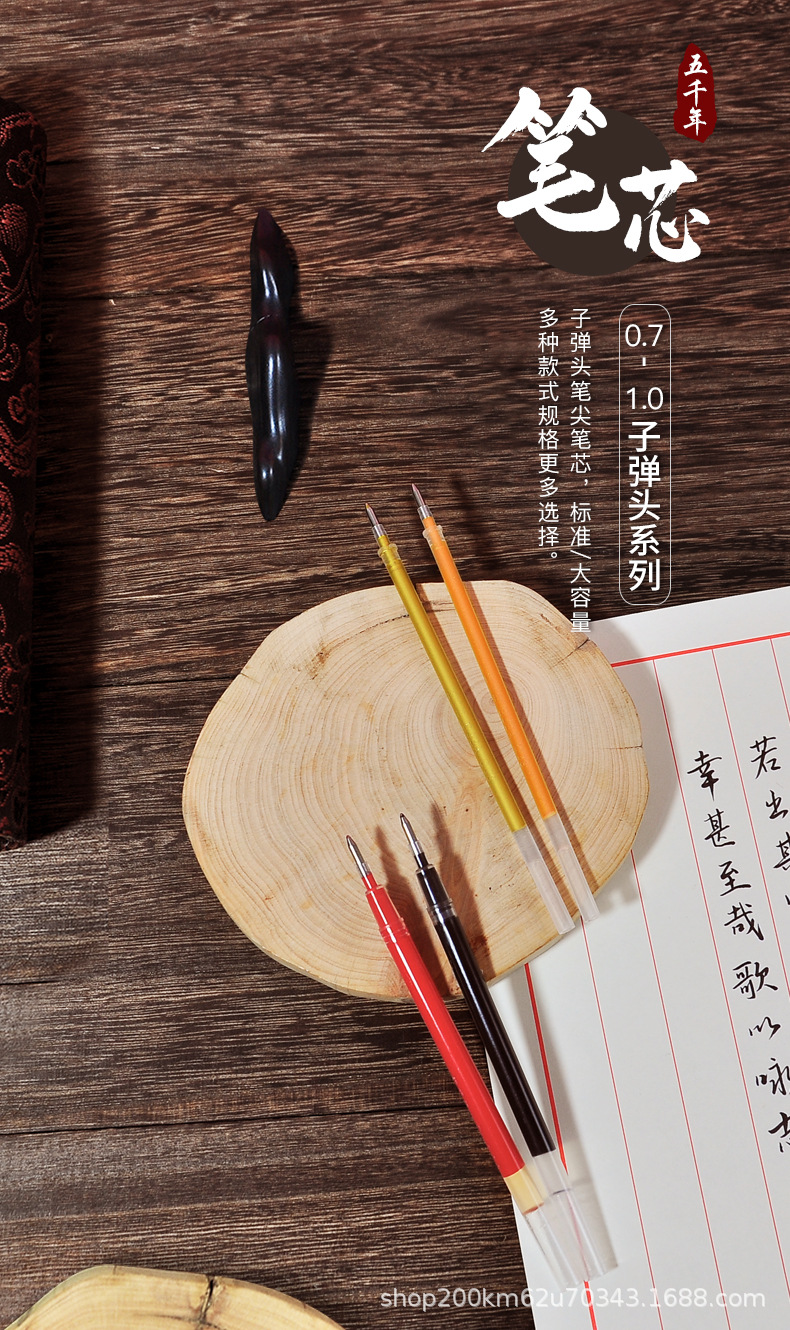 五千年
笔芯
0.7-1.0子弹头系列
子弹头笔尖笔芯，标准/大容量
多种款式规格更多选择。
若出其
幸甚至哉歌以咏志
shop200km62u70343.1688.com